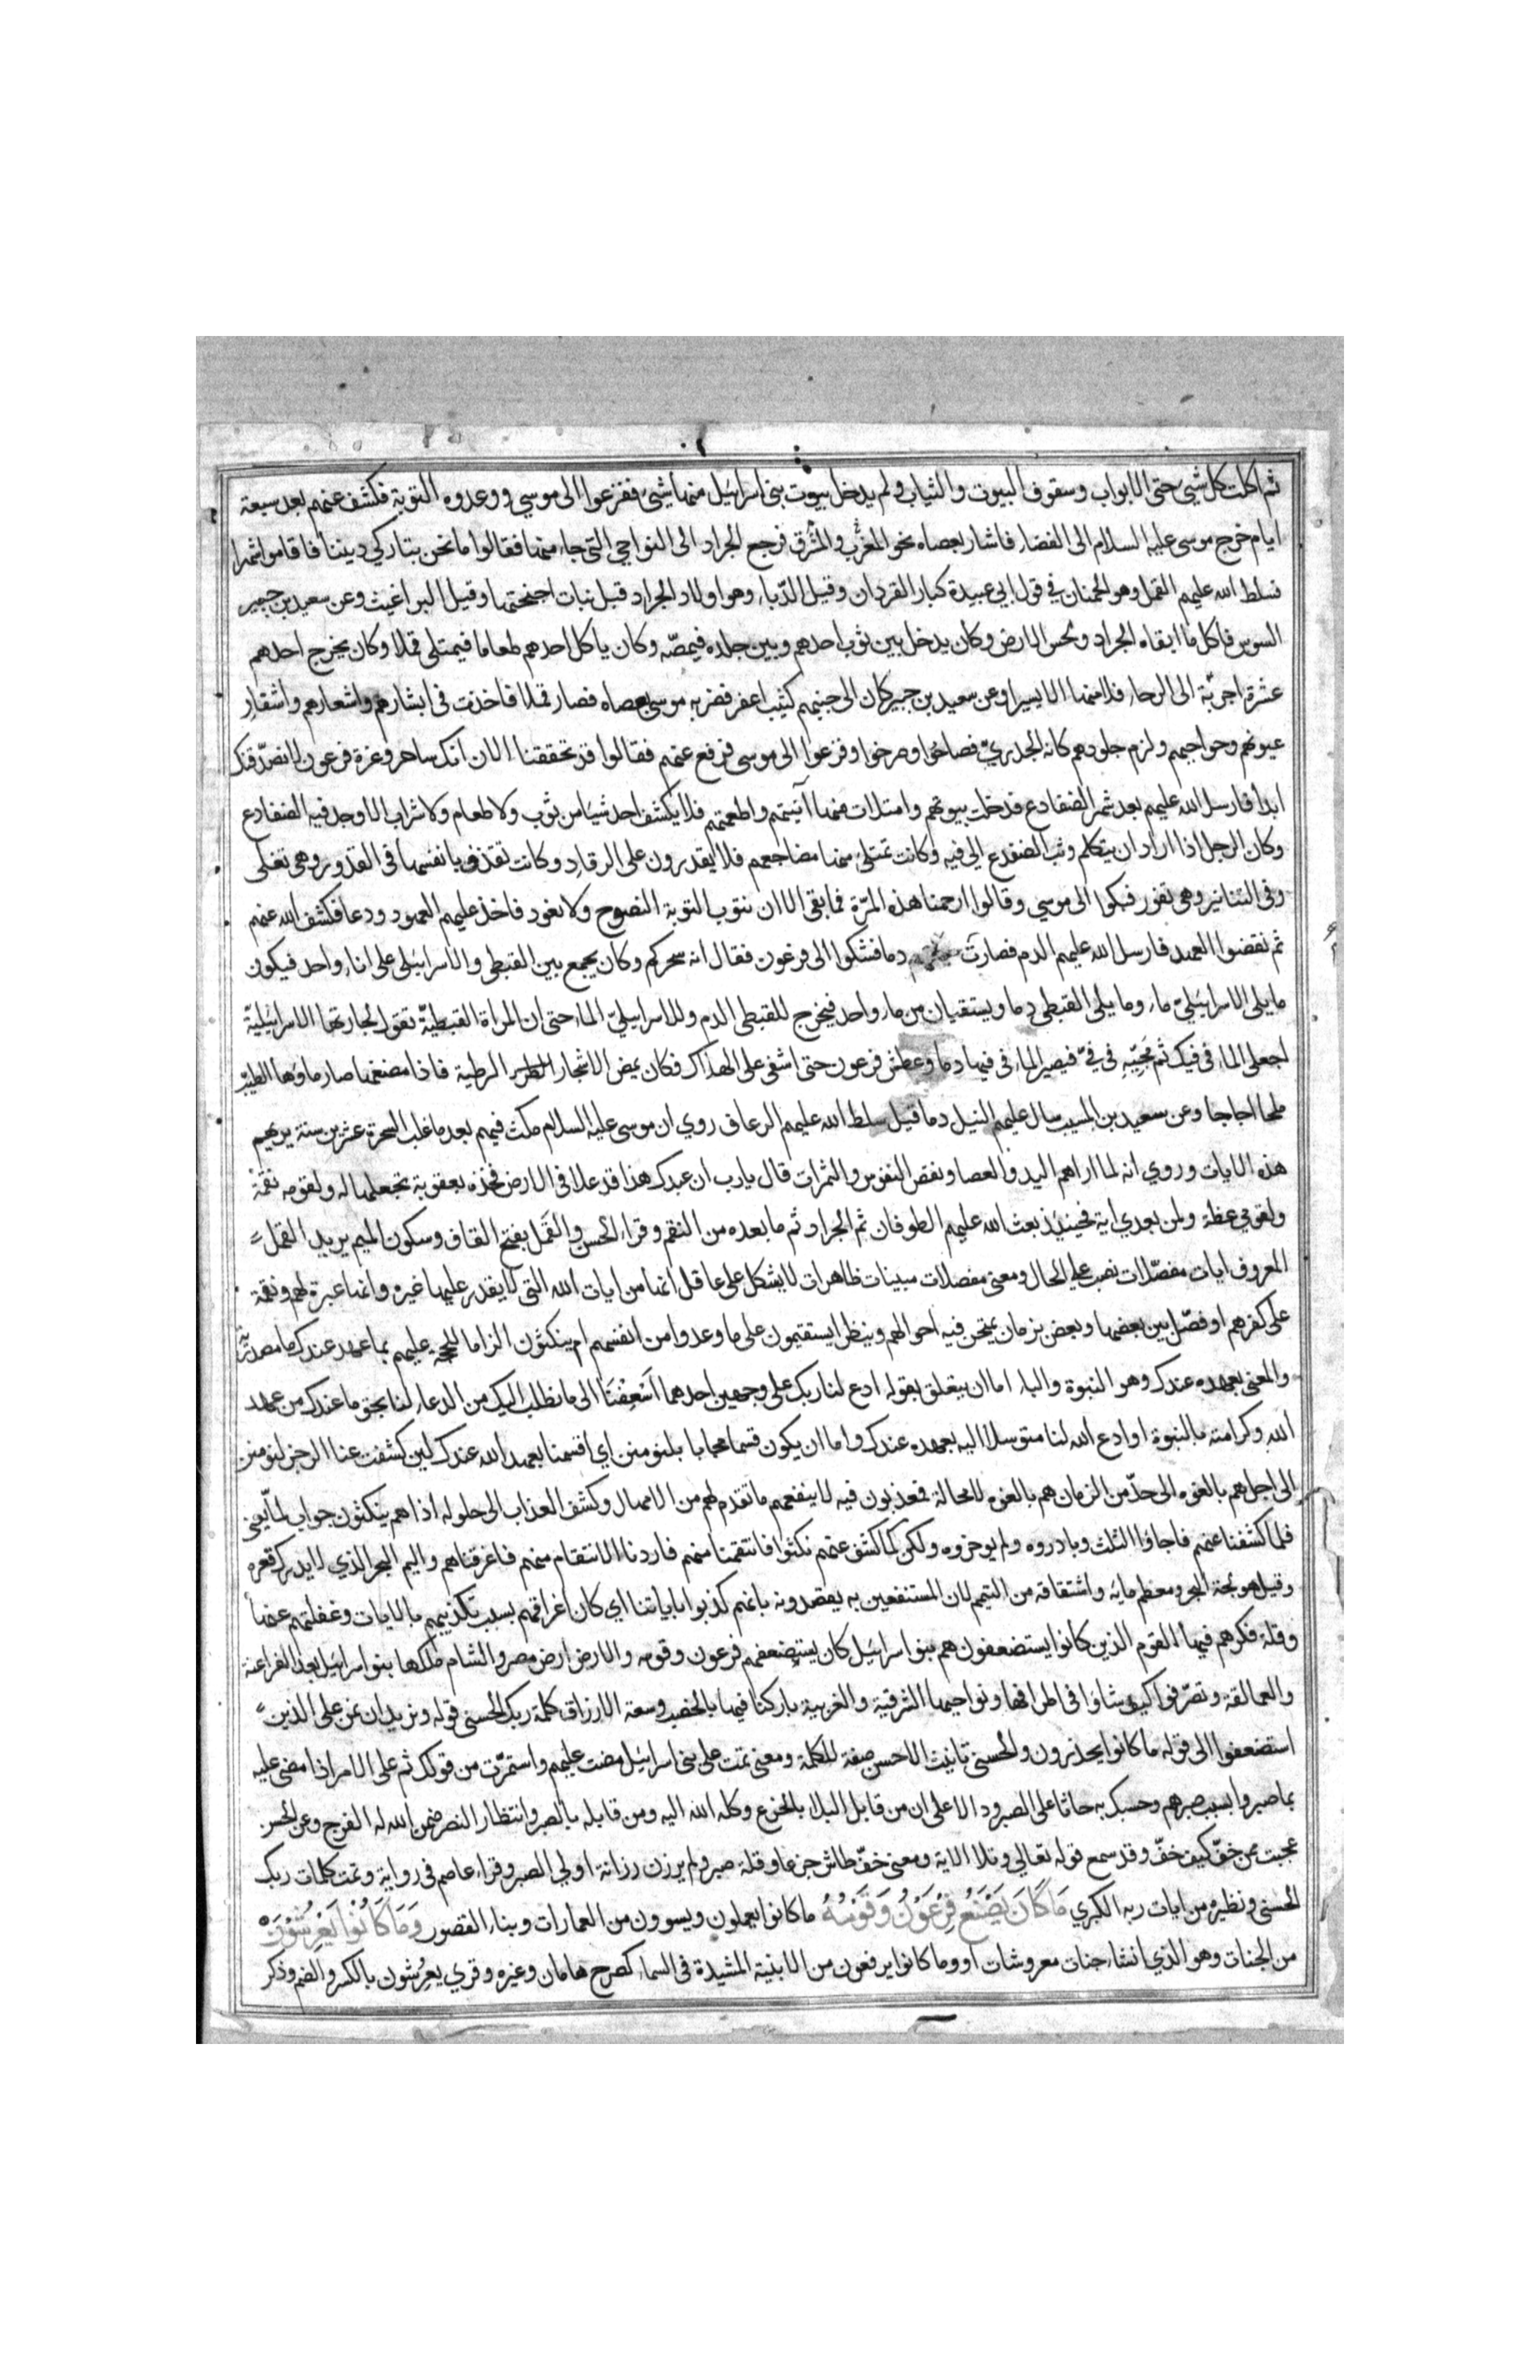 ثم اكلت كل شيء حتى الابواب وسقوف البيوت والثياب ولم يدخل بيوت بنى اسرائيل منها شيء ففزعوا الى موسي ووعدوه التوبة فكشف عنهم بعد سبعة
ايام خرج موسى عليه السلام الى الفضاء فاشار بعصاه نحو المغرب والمشرق فرجع الجراد الى النواحي التي جاء منها فقالوا ما نحن بتاركي ديننا فاقاموا شهرا
فسلط الله عليهم القمل وهو الحمنان في قول ابي عبيدة كبار القردان وقيل الدّباء وهو اولاد الجراد قبل نبات اجنحتها وقيل البراغيث وعن سعيد بن جبير
السوس فاكل ما ابقاه الجراد ولحس الارض وكان يدخل بين ثوب احدهم وبين جلده فيمصّه وكان ياكل احدهم طعاما فيمتلى قملا وكان يخرج احدهم
عشرة اجربّة الى الرحاء فلا منها الا يسيرا وعن سعيد بن جبير كان الى جنبهم كثيب اعفر فضربه موسى بعصاه فصار قملا فاخذت فى ابشارهم واشعارهم واشفار
عيونهم وحواجبهم ولزم جلودهم كانه الجدريّ فصاحوا وصرخوا وفزعوا الى موسى فرفع عنهم فقالوا قد تحققنا الان انك ساحر وعزة فرعون لا نصدّقك
ابدا فارسل الله عليهم بعد شهر الضفادع فدخلت بيوتهم وامتلات منها آنيتهم واطعمتهم فلا يكشف احد شيئا من ثوب ولا طعام ولا شراب الا وجد فيه الضفادع
وكان الرجل اذا اراد ان يتكلم وثب الضفدع الى فيه وكانت تمتلئ منها مضاجعهم فلا يقدرون على الرقاد وكانت تقذف بانفسها في القدور وهي تغلى
وفى التنانير وهي تفور فبكوا الى موسي وقالوا ارحمنا هذه المرّة فما بقى الا ان نتوب التوبة النصوح ولا نعود فاخذ عليهم العهود ودعا فكشف الله عنهم
ثم نقضوا العهد فارسل الله عليهم الدم فصارت دما فشكوا الى فرعون فقال انه سحركم وكان يجمع بين القبطي والاسرائيلى على اناء واحد فيكون
ما يلى الاسرائيليّ ماء وما يلى القبطي دما ويستقيان من ماء واحد فيخرج للقبطى الدم وللاسرائيليّ الماء حتى ان المراة القبطيّة تقول لجارتها الاسرائيليّة
اجعلى الماء في فيك ثم مجّيه في فيّ فيصير الماء في فيها دما وعطش فرعون حتى اشفى على الهلاك فكان يمض الاشجار الرطبة فاذا مضغها صار ماؤها الطيّب
ملحا اجاجا وعن سعيد بن المسيب سال عليهم النيل دما قيل سلط الله عليهم الرعاف روي ان موسى عليه السلام مكث فيهم بعد ما غلب السحرة عشرين سنة يريهم
هذه الايات وروي انه لما اراهم اليد والعصا ونقص النفوس والثمرات قال يارب ان عبدك هذا قد علا فى الارض فخذه بعقوبة تجعلها له ولقومه نقمة
ولقومي عظة ولمن بعدي اية فحينئذ بعث الله عليهم الطوفان ثم الجراد ثم ما بعده من النقم وقراء الحسن والقَمل بفتح القاف وسكون الميم يريد القمل
المعروف ايات مفصّلات نصب على الحال ومعنى مفصلات مبينات ظاهرات لا يشكل على عاقل انها من ايات الله التي لا يقدر عليها غيره وانها عبرة لهم ونقمة
على كفرهم او فصّل بين بعضها وبعض بزمان يمتحن فيه احوالهم وينظر ايستقيمون على ما وعدوا من انفسهم ام ينكثون الزاما للحجة عليهم بما عهد عندك ما مصدريّة
والمعنى بعهده عندك وهو النبوة والباء اما ان يتعلق بقوله ادع لنا ربك على وجهين احدهما اَسْعِفْنَا الى ما نطلب اليك من الدعاء لنا بحق ما عندك من عهد
الله وكرامته بالنبوة او ادع الله لنا متوسلا اليه بعهده عندك واما ان يكون قسما مجابا بلنومنن اي اقسمنا بعهد الله عندك لئن كشفت عنا الرجز لنومنن
الى اجل هم بالغوه الى حدّ من الزمان هم بالغوه لا محالة فمعذبون فيه لا ينفعهم ما تقدم لهم من الامهال وكشف العذاب الى حلوله اذا هم ينكثون جواب لمّا يعنى
فلما كشفنا عنهم فاجاؤا النكث وبادروه ولم يوخروه ولكن كما كشف عنهم نكثوا فانتقمنا منهم فاردنا الانتقام منهم فاغرقناهم واليم البحر الذي لا يدرك قعره
وقيل هو لجة البحر ومعظم مائه واشتقاقه من التيمم لان المستنفعين به يقصدونه بانهم كذبوا باياتنا اي كان اغراقهم بسبب تكذيبهم بالايات وغفلتهم عنها
وقلة فكرهم فيها القوم الذين كانوا يستضعفون هم بنو اسرائيل كان يستضعفهم فرعون وقومه والارض ارض مصر والشام ملكها بنو اسرائيل بعد الفراعنة
والعمالقة وتصرّفوا كيف شاؤا فى اطرافها ونواحيها الشرقية والغربية باركنا فيها بالخصب وسعة الارزاق كلمة ربك الحسنى قوله ونريد ان نمن على الذين
استضعفوا الى قوله ما كانوا يحذرون والحسنى تانيث الاحسن صفة للكلمة ومعنى تمت على بنى اسرائيل مضت عليهم واستمرّت من قولك تم على الامر اذا مضى عليه
بما صبروا بسبب صبرهم وحسبك به حاثا على الصبر ودالا على ان من قابل البلاء بالجزع وكله الله اليه ومن قابله بالصبر وانتظار النصر ضمن الله له الفرج وعن الحسن
عجبت ممن خفّ كيف خفّ وقد سمع قوله تعالي وتلا الاية ومعنى خفّ طاش جزعا وقلة صبر ولم يرزن رزانة اولي الصبر وقراء عاصم فى رواية وتمت كلمات ربك
الحسنى ونظيره من ايات ربه الكبري مَا كَانَ يَصْنَعُ فِرْعَوْنُ وَقَوْمُهُ ما كانوا يعملون ويسوون من العمارات وبناء القصور وَمَا كَانُوا يَعْرِشُونَ
من الجنات وهو الذي انشاء جنات معروشات او وما كانوا يرفعون من الابنية المشيدة فى السماء كصرح هامان وغيره وقري يعرشون بالكسر والضم وذكر